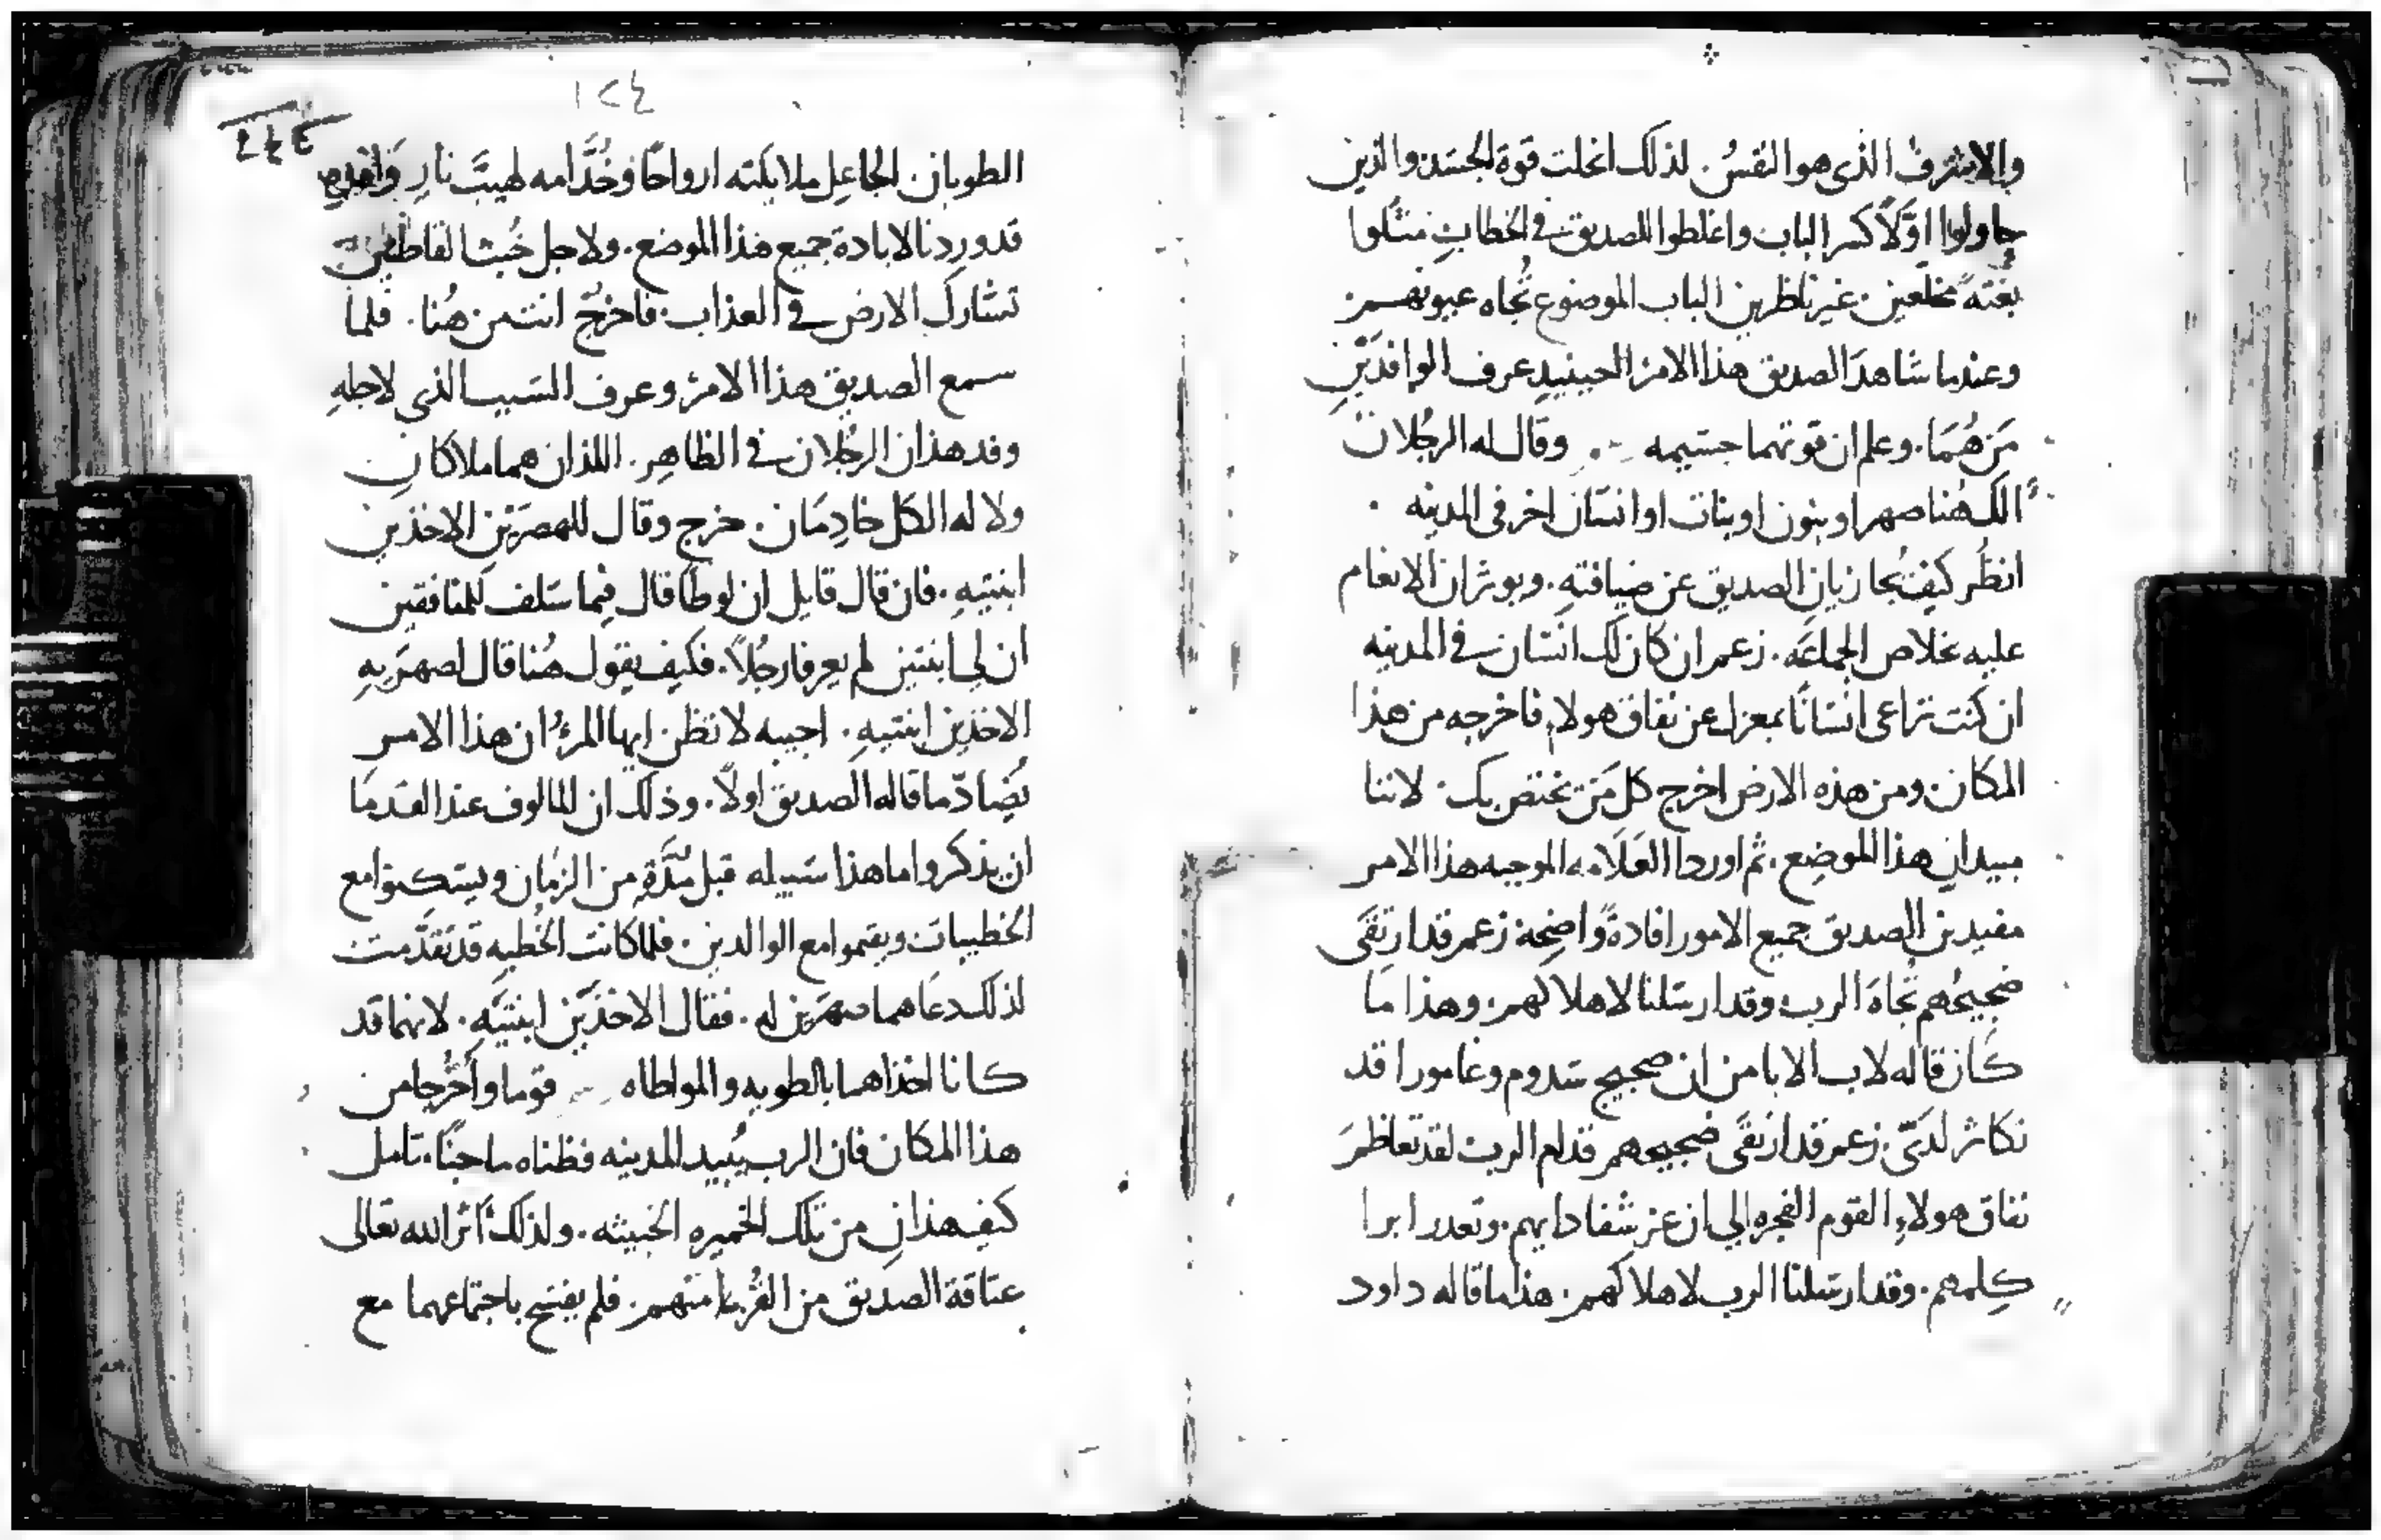 والاشرف الذى هو النفسُ. لذلك انحلت قوة الجسَد والذين
حاولوا اوّلاً كسر الباب واغلظوا للصديق في الخطابِ مثلوا
بغتهً مخلّعين غير ناظرين الباب الموضوع تُجاه عيونهم
وعندما شاهدَ الصديق هذا الامرَ الحينيدِ عرف الوافدَيْنِ
مَن هُمَا. وعلم ان قوتهما جسَيمه . وقال له الرجُلان
الك هُنا صهر او بنون او بنات او انسَان اخر فى المدينه
انظُر كيف يُجازيانِ الصديق عن ضيافتهِ. ويوثران الانعام
عليه بخلاص الجماعَه. زعم ان كان لك انسَان في المدينه
ان كنت تراعى انسَانًا بمعزل عن نفاق هولاءِ فاخرجه من هذا
المكان ومن هذه الارض اخرج كل مَن يختص بك. لاننا
مبيدانِ هذا الموضِع. ثم اوردا العَلَامه الموجبه هذا الامر
مفيدين الصديق جميع الامور افادةً واضِحة زعم قد ارتقَى
ضجيجُهم تُجاهَ الرب وقد ارسَلنا لاهلاكهم. وهذا مَا
كَان قاله لاب الابا من ان ضجيج سَدوم وغامورا قد
تكاثر لدَىّ. زعم قد ارتقَى ضجيجهم قدام الرب لقد تعاظمَ
نفاق هولاءِ القوم الفجره الي ان عز شفا دايهم. وتعدر ابرا
كِلمهم. وقد ارسَلنا الرب لاهلاكهم. هذا ما قاله داود
١٢٤
الطوبان. الجاعِل ملايكته ارواحًا وخُدَّامه لهيبَ نارِ
قد وردنا لابادة جميع هذا الموضع. ولاجل خُبث القاطنين
تشارك الارض في العذاب. فاخرجُ انت من هُنا. فلما
سمع الصديق هذا الامرَ وعرف السَبب الذى لاجلهِ
وفد هذان الرجُلان في الظاهِر. اللذان هما ملاكانِ
ولاله الكل خادِمَان. خرج وقال للصهرَيْنِ الاخذين
ابنتيهِ. فان قال قايل ان لوطًا قال فيما سَلف للمنافقين
ان لي ابنتين لم يعرفا رجُلاً. فكيف يقول هُنا قال لصهرَيهِ
الاخذين ابنتيهِ. اجيبه لا تظن ايها المرءُ ان هذا الامر
يُضَادّ ما قاله الصديق اولاً. وذلك ان المالوف عند القدمَا
ان يذكروا ما هذا سَبيله قبل مُدَّةٍ من الزمَان ويسَكنوا مع
الخطيبات ويقيموا مع الوالدين. فلما كانت الخُطبه قد تقدَّمت
لذلك دعَاهما صهرَين له. فقال الاخذَيْن ابنتيَهِ. لانهما قد
كانا اخذاهما بالطويه والمواطاه قوما واخرُجا من
هذا المكان فان الرب يُبيد المدينه فظناه مَاجنًا. تامل
كيف هذانِ من تلك الخميره الخبيثه. ولذلك اثر الله تعالى
عتاقة الصديق من القُربا منهم. فلم يفتح باجتماعهما مع